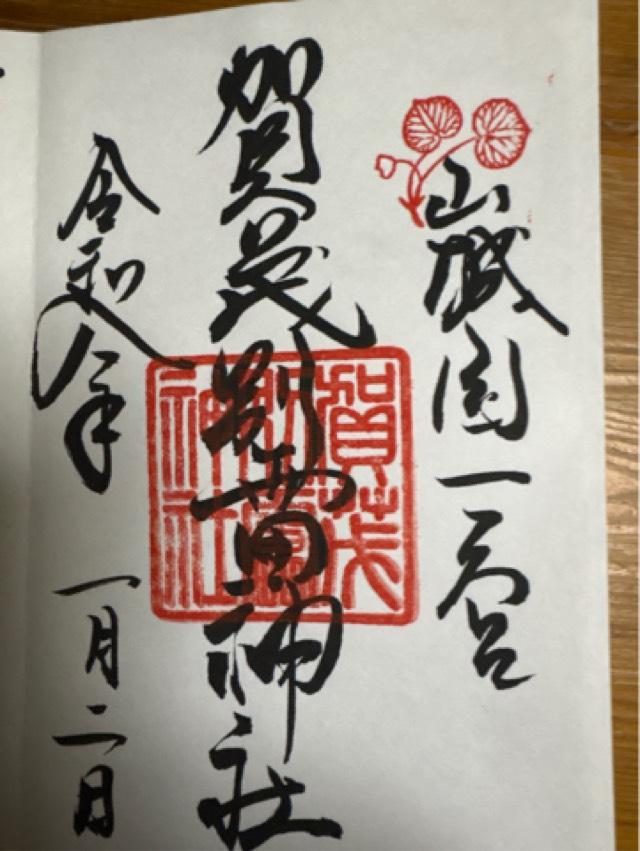 山城国一之宮
賀茂別雷神社
賀茂別雷神社
令和八年 一月二日